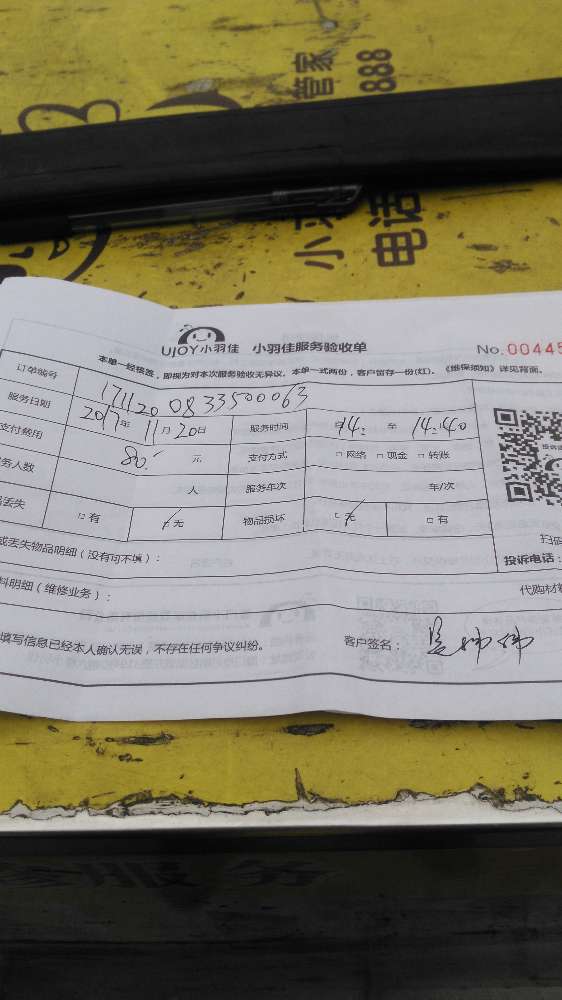 管家
888
小羽
电话
UJOY小羽佳 小羽佳服务验收单
No.00445
本单一经核签，即视为对本次服务验收无异议。本单一式两份，客户留存一份(红)。《维保须知》详见背面。
订单编号 171120 0833500063
服务日期 2017年 11月20日 服务时间 14: 至 14:40
支付费用 80 元 支付方式 □网络 □现金 □转账
务人数 人 服务车次 车/次
丢失 □有 无 物品损坏 无 □有
扫
或丢失物品明细（没有可不填）：
投诉电话：
料明细（维修业务）：
代购材
填写信息已经本人确认无误，不存在任何争议纠纷。
客户签名：
服务